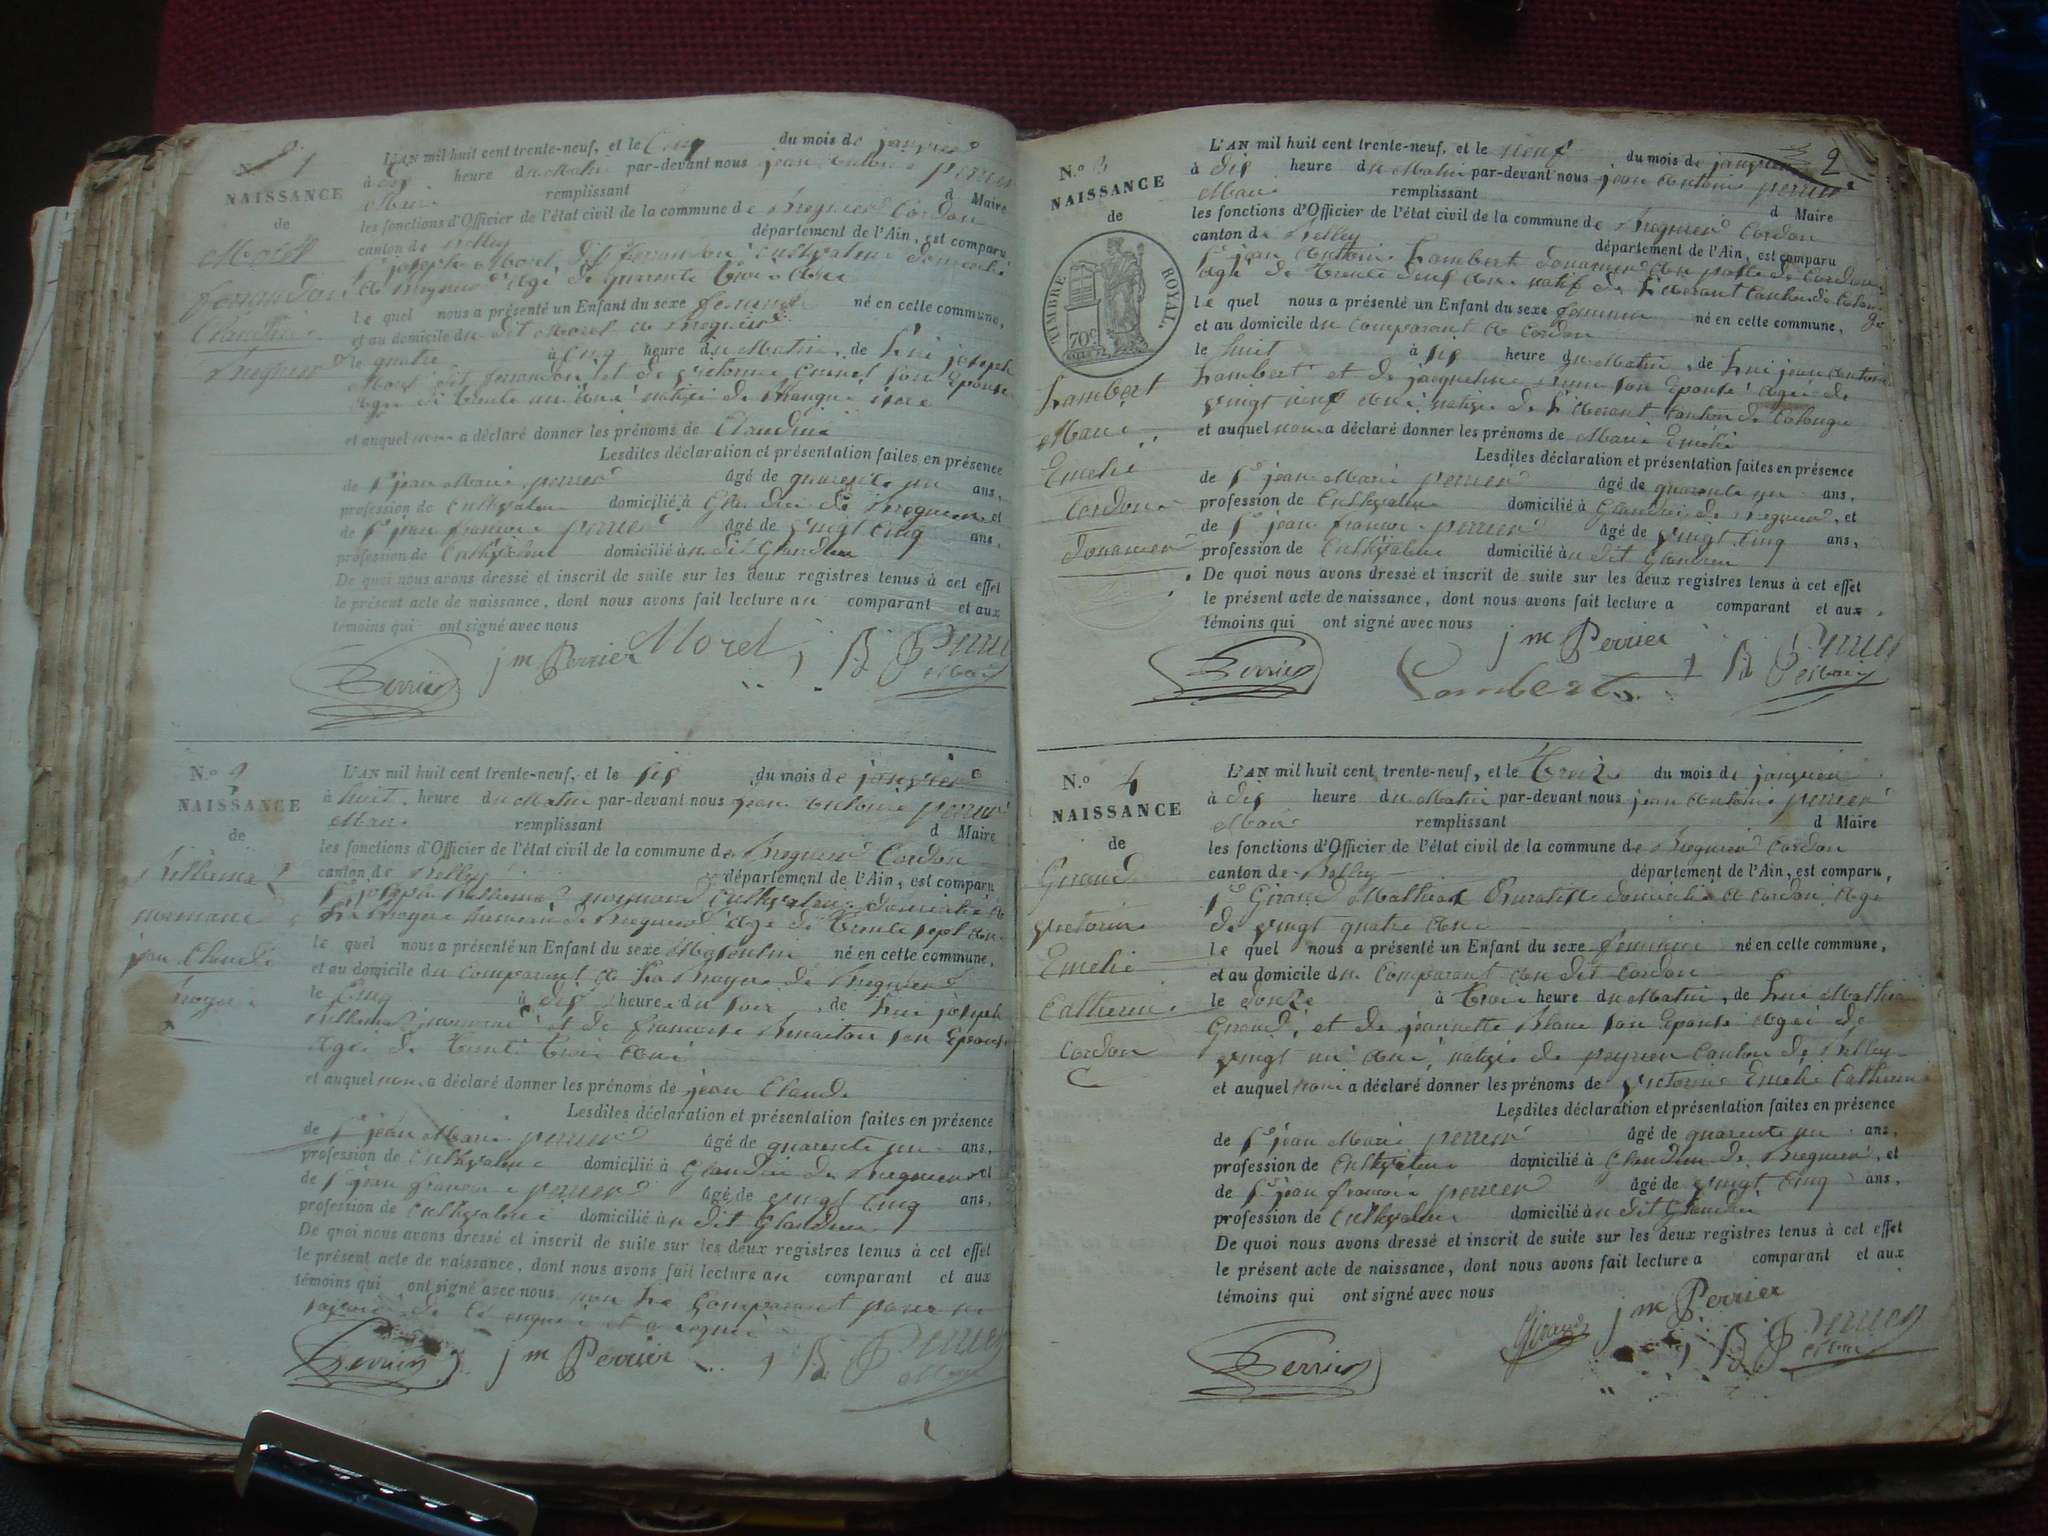 N.º 1
NAISSANCE
de
Morel
ferrandon
Claudine
Bregnier
L'AN mil huit cent trente-neuf, et le Cinq du mois de janvier
à dix heure du Matin par-devant nous jean Antoine perrier
Maire remplissant d Maire
les fonctions d'Officier de l'état civil de la commune de Bregnier Cordon
canton de Belley département de l'Ain, est comparu
Sr joseph Morel dit ferrandon Cultivateur domicilié
à Bregnier agé de quarente trois ans
le quel nous a présenté un Enfant du sexe feminin né en cette commune,
et au domicile du dit Morel à Bregnier
le quatre à Cinq heure du Matin, de Lui joseph
Morel dit ferrandon et de son Epouse
agée de trente un ans native de
et auquel nous a déclaré donner les prénoms de Claudine
Lesdites déclaration et présentation faites en présence
de Sr jean Marie perrier âgé de quarente un ans,
profession de Cultivateur domicilié à Glandieu de Bregnier et
de Sr jean francois perrier âgé de vingt Cinq ans,
profession de Cultivateur domicilié à u dit Glandieu
De quoi nous avons dressé et inscrit de suite sur les deux registres tenus à cet effet
le présent acte de naissance, dont nous avons fait lecture au comparant et aux
témoins qui ont signé avec nous
Perrier jm Perrier Morel j B Perrier
Maire
N.º 2
NAISSANCE
de
jean Claude
L'AN mil huit cent trente-neuf, et le six du mois de janvier
à huit heure du Matin par-devant nous jean Antoine perrier
Maire remplissant d Maire
les fonctions d'Officier de l'état civil de la commune de Bregnier Cordon
canton de Belley département de l'Ain, est comparu
Sr joseph Cultivateur domicilié à
La Bregnier agé de trente sept ans
le quel nous a présenté un Enfant du sexe Masculin né en cette commune,
et au domicile du comparant à La de Bregnier
le Cinq à dix heure du soir, de Lui joseph
et de francoise son Epouse
agée de trente trois ans
et auquel nous a déclaré donner les prénoms de jean Claude
Lesdites déclaration et présentation faites en présence
de Sr jean Marie perrier âgé de quarente un ans,
profession de Cultivateur domicilié à Glandieu de Bregnier et
de Sr jean francois perrier âgé de vingt Cinq ans,
profession de Cultivateur domicilié à u dit Glandieu
De quoi nous avons dressé et inscrit de suite sur les deux registres tenus à cet effet
le présent acte de naissance, dont nous avons fait lecture au comparant et aux
témoins qui ont signé avec nous non Le Comparant pour ne
savoir de ce enquis et requis
Perrier jm Perrier j B Perrier
Maire
2
N.º 3
NAISSANCE
de
TIMBRE ROYAL
70c
Lambert
Marie
Emelie
Cordon
Douanier
L'AN mil huit cent trente-neuf, et le neuf du mois de janvier
à dix heure du Matin par-devant nous jean Antoine perrier
Maire remplissant d Maire
les fonctions d'Officier de l'état civil de la commune de Bregnier Cordon
canton de Belley département de l'Ain, est comparu
Sr jean Antoine Lambert douanier au poste de Cordon
agé de trente neuf ans natif de canton de Colonge
le quel nous a présenté un Enfant du sexe feminin né en cette commune,
et au domicile du comparant à Cordon
le huit à six heure du Matin, de Lui jean antoine
Lambert et de jacqueline son Epouse agée de
vingt neuf ans native de canton de Colonge
et auquel nous a déclaré donner les prénoms de Marie Emelie
Lesdites déclaration et présentation faites en présence
de Sr jean Marie perrier âgé de quarente un ans,
profession de Cultivateur domicilié à Glandieu de Bregnier, et
de Sr jean francois perrier âgé de vingt Cinq ans,
profession de Cultivateur domicilié à u dit Glandieu
De quoi nous avons dressé et inscrit de suite sur les deux registres tenus à cet effet
le présent acte de naissance, dont nous avons fait lecture a comparant et aux
témoins qui ont signé avec nous
jm Perrier
Perrier Lambert j B Perrier
Maire
N.º 4
NAISSANCE
de
Giraud
Victorine
Emelie
Catherine
Cordon
L'AN mil huit cent trente-neuf, et le treize du mois de janvier
à dix heure du Matin par-devant nous jean Antoine perrier
Maire remplissant d Maire
les fonctions d'Officier de l'état civil de la commune de Bregnier Cordon
canton de Belley département de l'Ain, est comparu,
Sr Giraud Mathieu domicilié à Cordon agé
de vingt quatre ans
le quel nous a présenté un Enfant du sexe feminin né en cette commune,
et au domicile du Comparant au dit Cordon
le douze à trois heure du Matin, de Lui Mathieu
Giraud, et de jeannette Blanc son Epouse agée de
vingt un ans, native de peyrieu canton de Belley
et auquel nous a déclaré donner les prénoms de Victorine Emelie Catherine
Lesdites déclaration et présentation faites en présence
de Sr jean Marie perrier âgé de quarente un ans,
profession de Cultivateur domicilié à Glandieu de Bregnier, et
de Sr jean francois perrier âgé de vingt Cinq ans,
profession de Cultivateur domicilié à u dit Glandieu
De quoi nous avons dressé et inscrit de suite sur les deux registres tenus à cet effet
le présent acte de naissance, dont nous avons fait lecture a comparant et aux
témoins qui ont signé avec nous
Giraud jm Perrier
Perrier j B Perrier
Maire